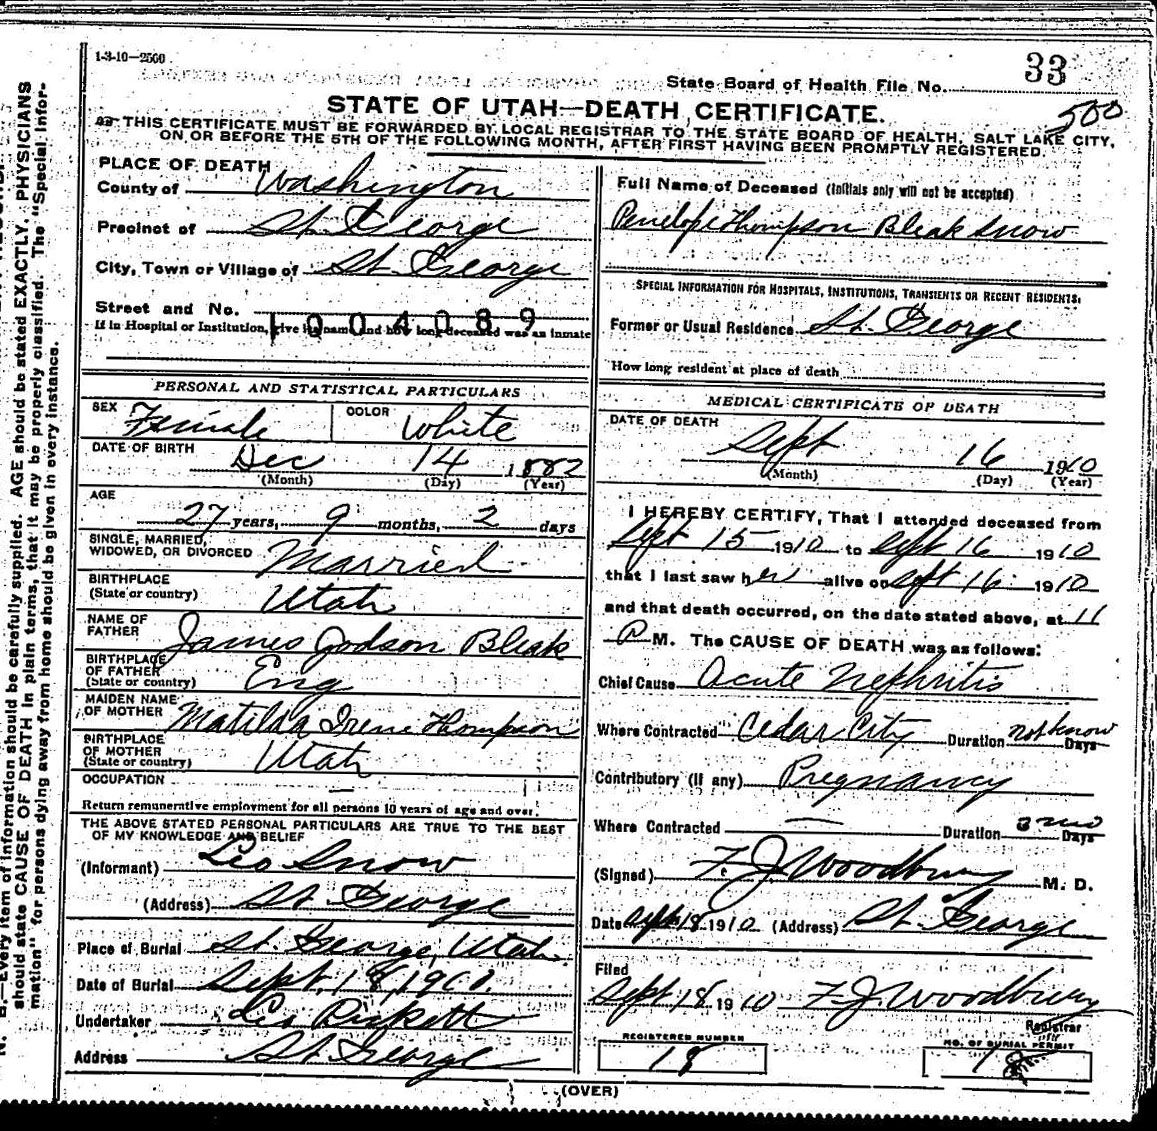 1-3-10—2500
State Board of Health File No. 33
500
STATE OF UTAH—DEATH CERTIFICATE.
THIS CERTIFICATE MUST BE FORWARDED BY LOCAL REGISTRAR TO THE STATE BOARD OF HEALTH, SALT LAKE CITY,
ON OR BEFORE THE 5TH OF THE FOLLOWING MONTH, AFTER FIRST HAVING BEEN PROMPTLY REGISTERED.
PLACE OF DEATH
County of Washington
Precinct of St. George
City, Town or Village of St. George
Street and No.
1004089
If in Hospital or Institution, give its name and how long deceased was an inmate
PERSONAL AND STATISTICAL PARTICULARS
SEX Female COLOR White
DATE OF BIRTH Dec 14 1882
(Month) (Day) (Year)
AGE
27 years, 9 months, 2 days
SINGLE, MARRIED,
WIDOWED, OR DIVORCED Married
BIRTHPLACE
(State or country) Utah
NAME OF
FATHER James Godson Bleak
BIRTHPLACE
OF FATHER
(State or country) Eng
MAIDEN NAME
OF MOTHER Matilda Irene Thompson
BIRTHPLACE
OF MOTHER
(State or country) Utah
OCCUPATION —
Return remunerative employment for all persons 10 years of age and over.
THE ABOVE STATED PERSONAL PARTICULARS ARE TRUE TO THE BEST
OF MY KNOWLEDGE AND BELIEF
(Informant) Leo Snow
(Address) St. George
Place of Burial St. George, Utah
Date of Burial Sept. 18, 1910
Undertaker Pickett
Address St George
Full Name of Deceased (Initials only will not be accepted)
Penelope Thompson Bleak Snow
SPECIAL INFORMATION FOR HOSPITALS, INSTITUTIONS, TRANSIENTS OR RECENT RESIDENTS.
Former or Usual Residence St. George
How long resident at place of death
MEDICAL CERTIFICATE OF DEATH
DATE OF DEATH
Sept 16 1910
(Month) (Day) (Year)
I HEREBY CERTIFY, That I attended deceased from
Sept 15 1910 to Sept 16 1910
that I last saw her alive on Sept 16 1910
and that death occurred, on the date stated above, at 11
P M. The CAUSE OF DEATH was as follows:
Chief Cause Acute Nephritis
Where Contracted Cedar City Duration not know Days
Contributory (if any) Pregnancy
Where Contracted — Duration 3 mo Days
(Signed) F. J. Woodbury M. D.
Date Sept 18 1910 (Address) St. George
Filed
Sept 18 1910 F. J. Woodbury
Registrar
REGISTERED NUMBER
18
NO. OF BURIAL PERMIT
18
(OVER)
N. B.—Every item of information should be carefully supplied. AGE should be stated EXACTLY. PHYSICIANS
should state CAUSE OF DEATH in plain terms, that it may be properly classified. The "Special Infor-
mation" for persons dying away from home should be given in every instance.